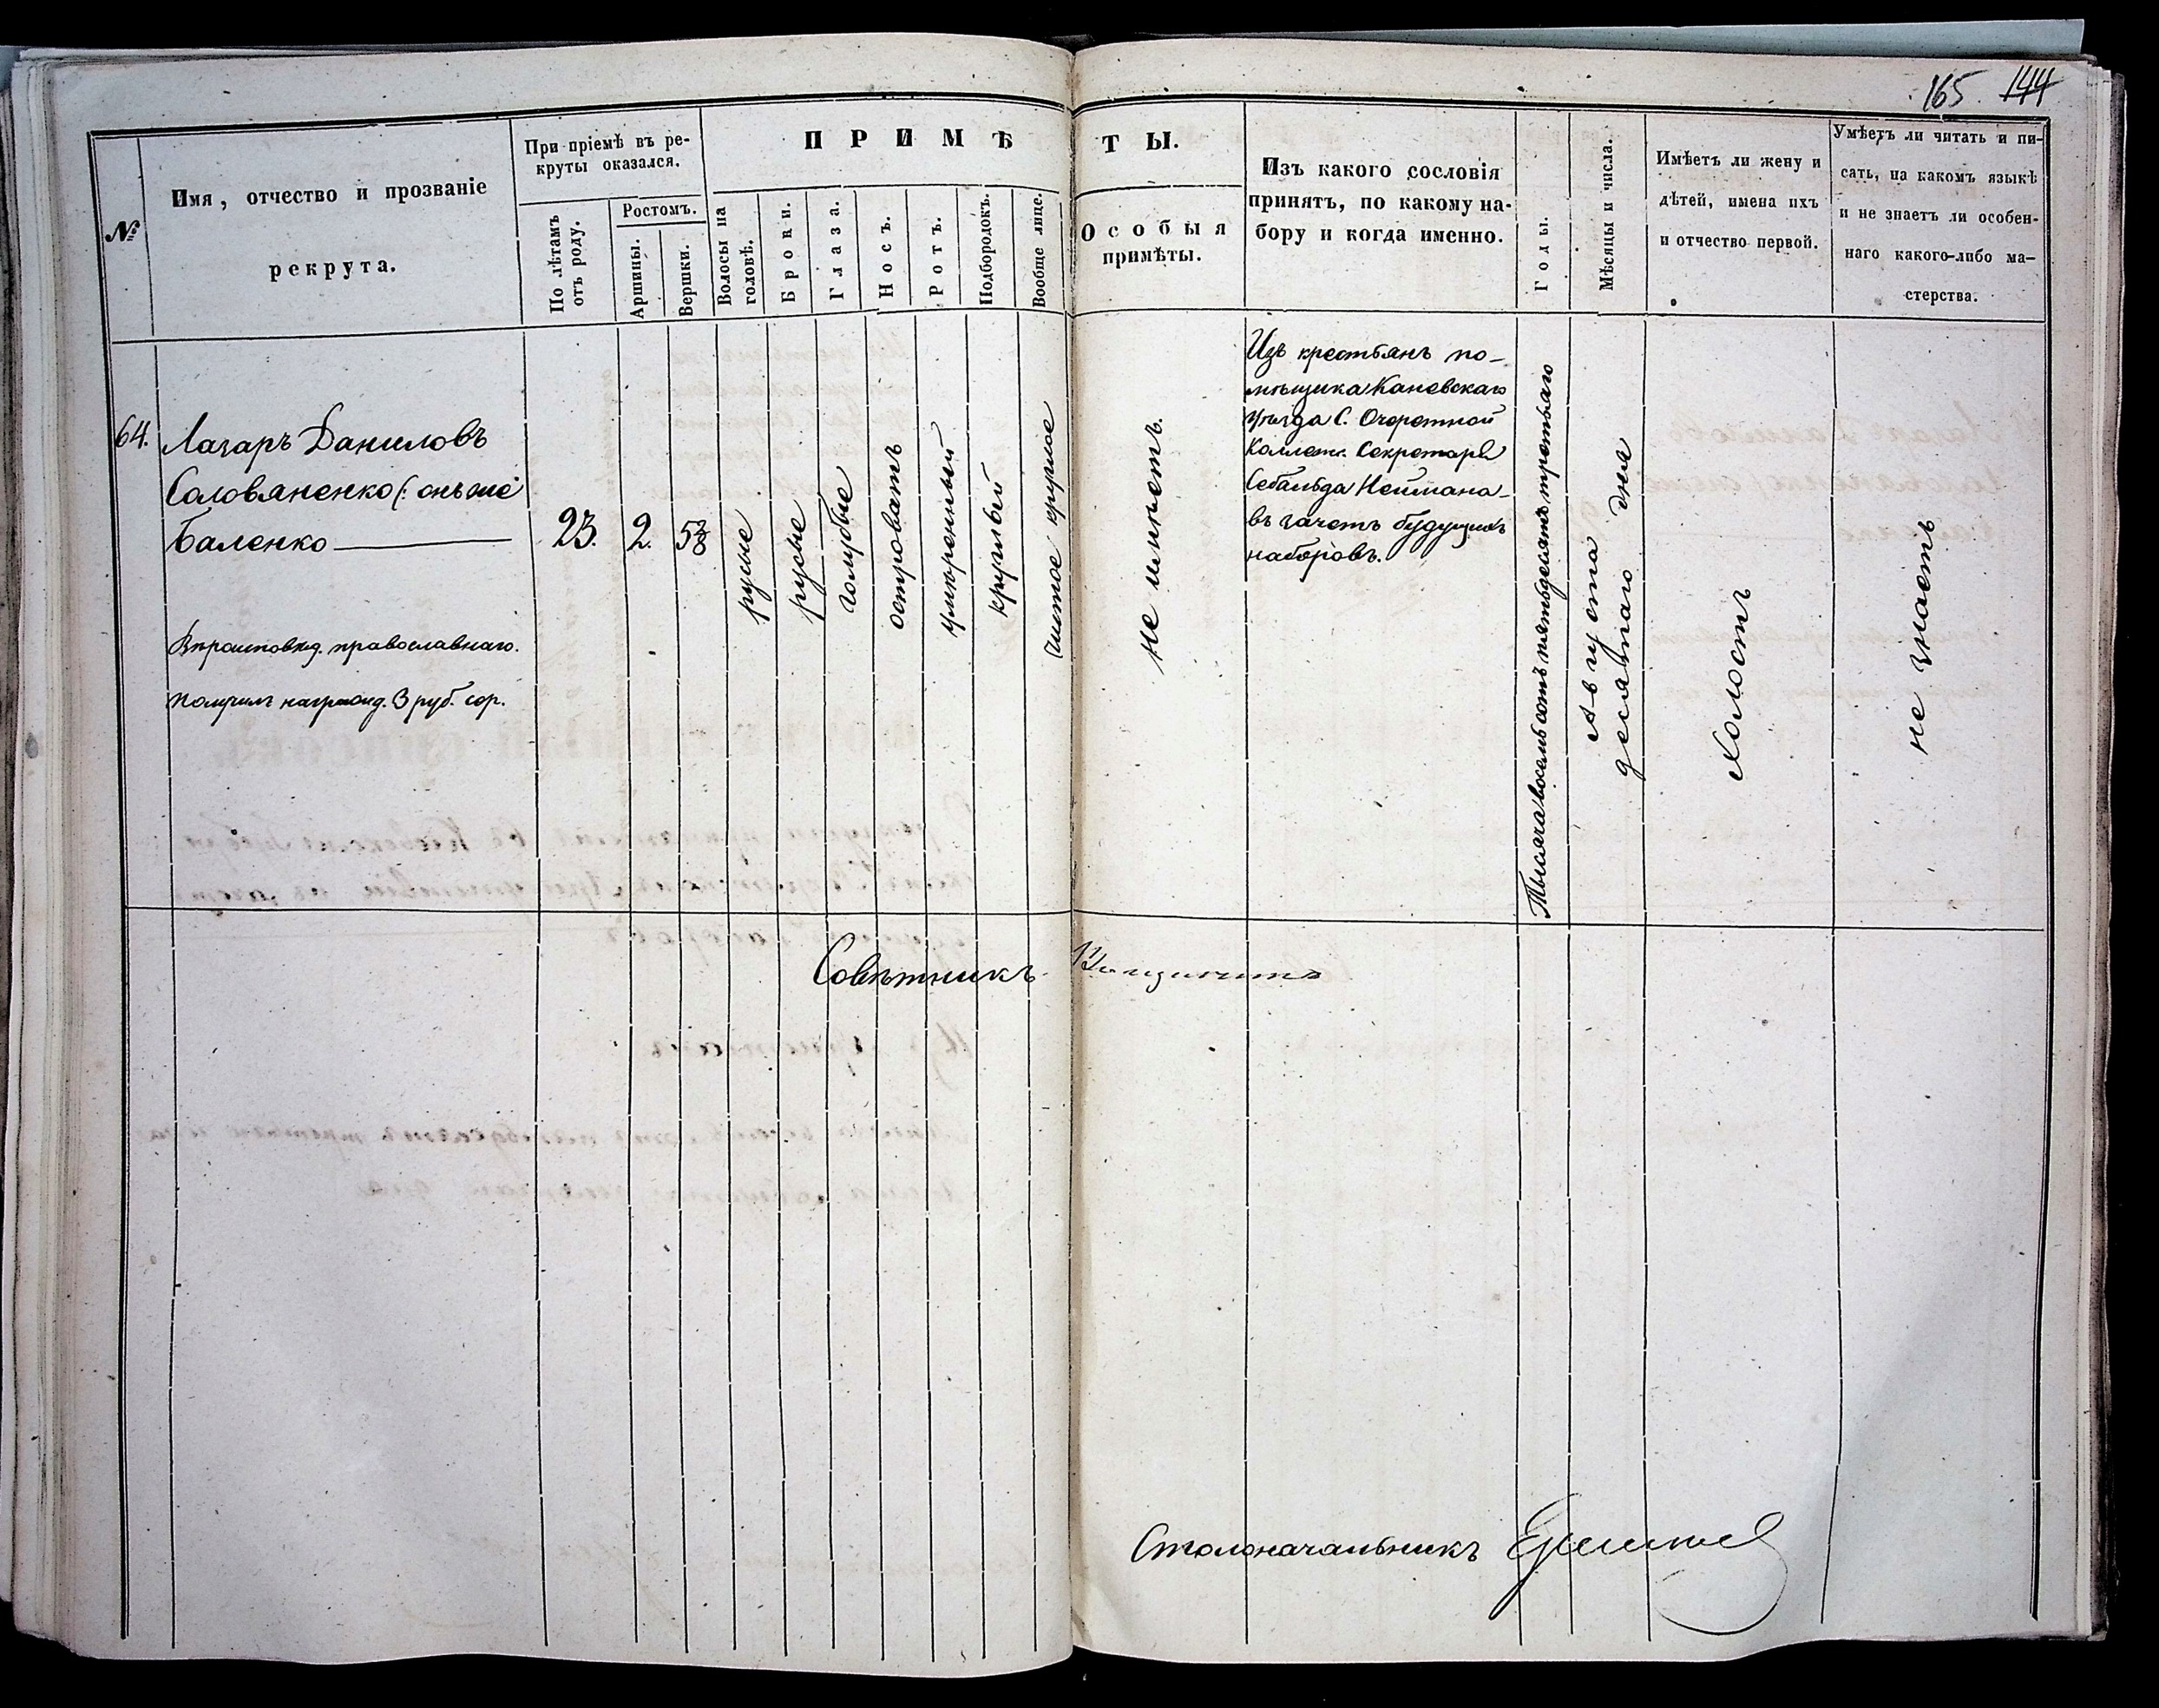 165. 144
№
Имя, отчество и прозваніе
рекрута.
При пріемѣ въ ре-
круты оказался.
По лѣтамъ
отъ роду.
Ростомъ.
Аршины.
Вершки.
ПРИМѢТЫ.
Волосы на
головѣ.
Брови.
Глаза.
Носъ.
Ротъ.
Подбородокъ.
Вообще лице.
Особыя
примѣты.
Изъ какого сословія
принятъ, по какому на-
бору и когда именно.
Годы.
Мѣсяцы и числа.
Имѣетъ ли жену и
дѣтей, имена ихъ
и отчество первой.
Умѣетъ ли читать и пи-
сать, на какомъ языкѣ
и не знаетъ ли особен-
наго какого-либо ма-
стерства.
64.
Лазаръ Даниловъ
Соловяненко (: онъ же
Баленко
Вѣроисповѣд. православнаго.
получилъ награжд. 3 руб. сер.
23.
2.
5 3/8
русые
русые
голубые
островатъ
умѣренный
круглый
Чистое круглое
не имѣетъ.
Изъ крестьянъ по-
мѣщика Каневскаго
уѣзда С. Очеретной
Коллеж. Секретаря
Себальда Неймана
въ зачетъ будущихъ
наборовъ.
Тысяча восемьсотъ пятьдесятъ третьяго
Августа
десятаго дня
Холостъ
не знаетъ
Совѣтникъ
Столоначальникъ